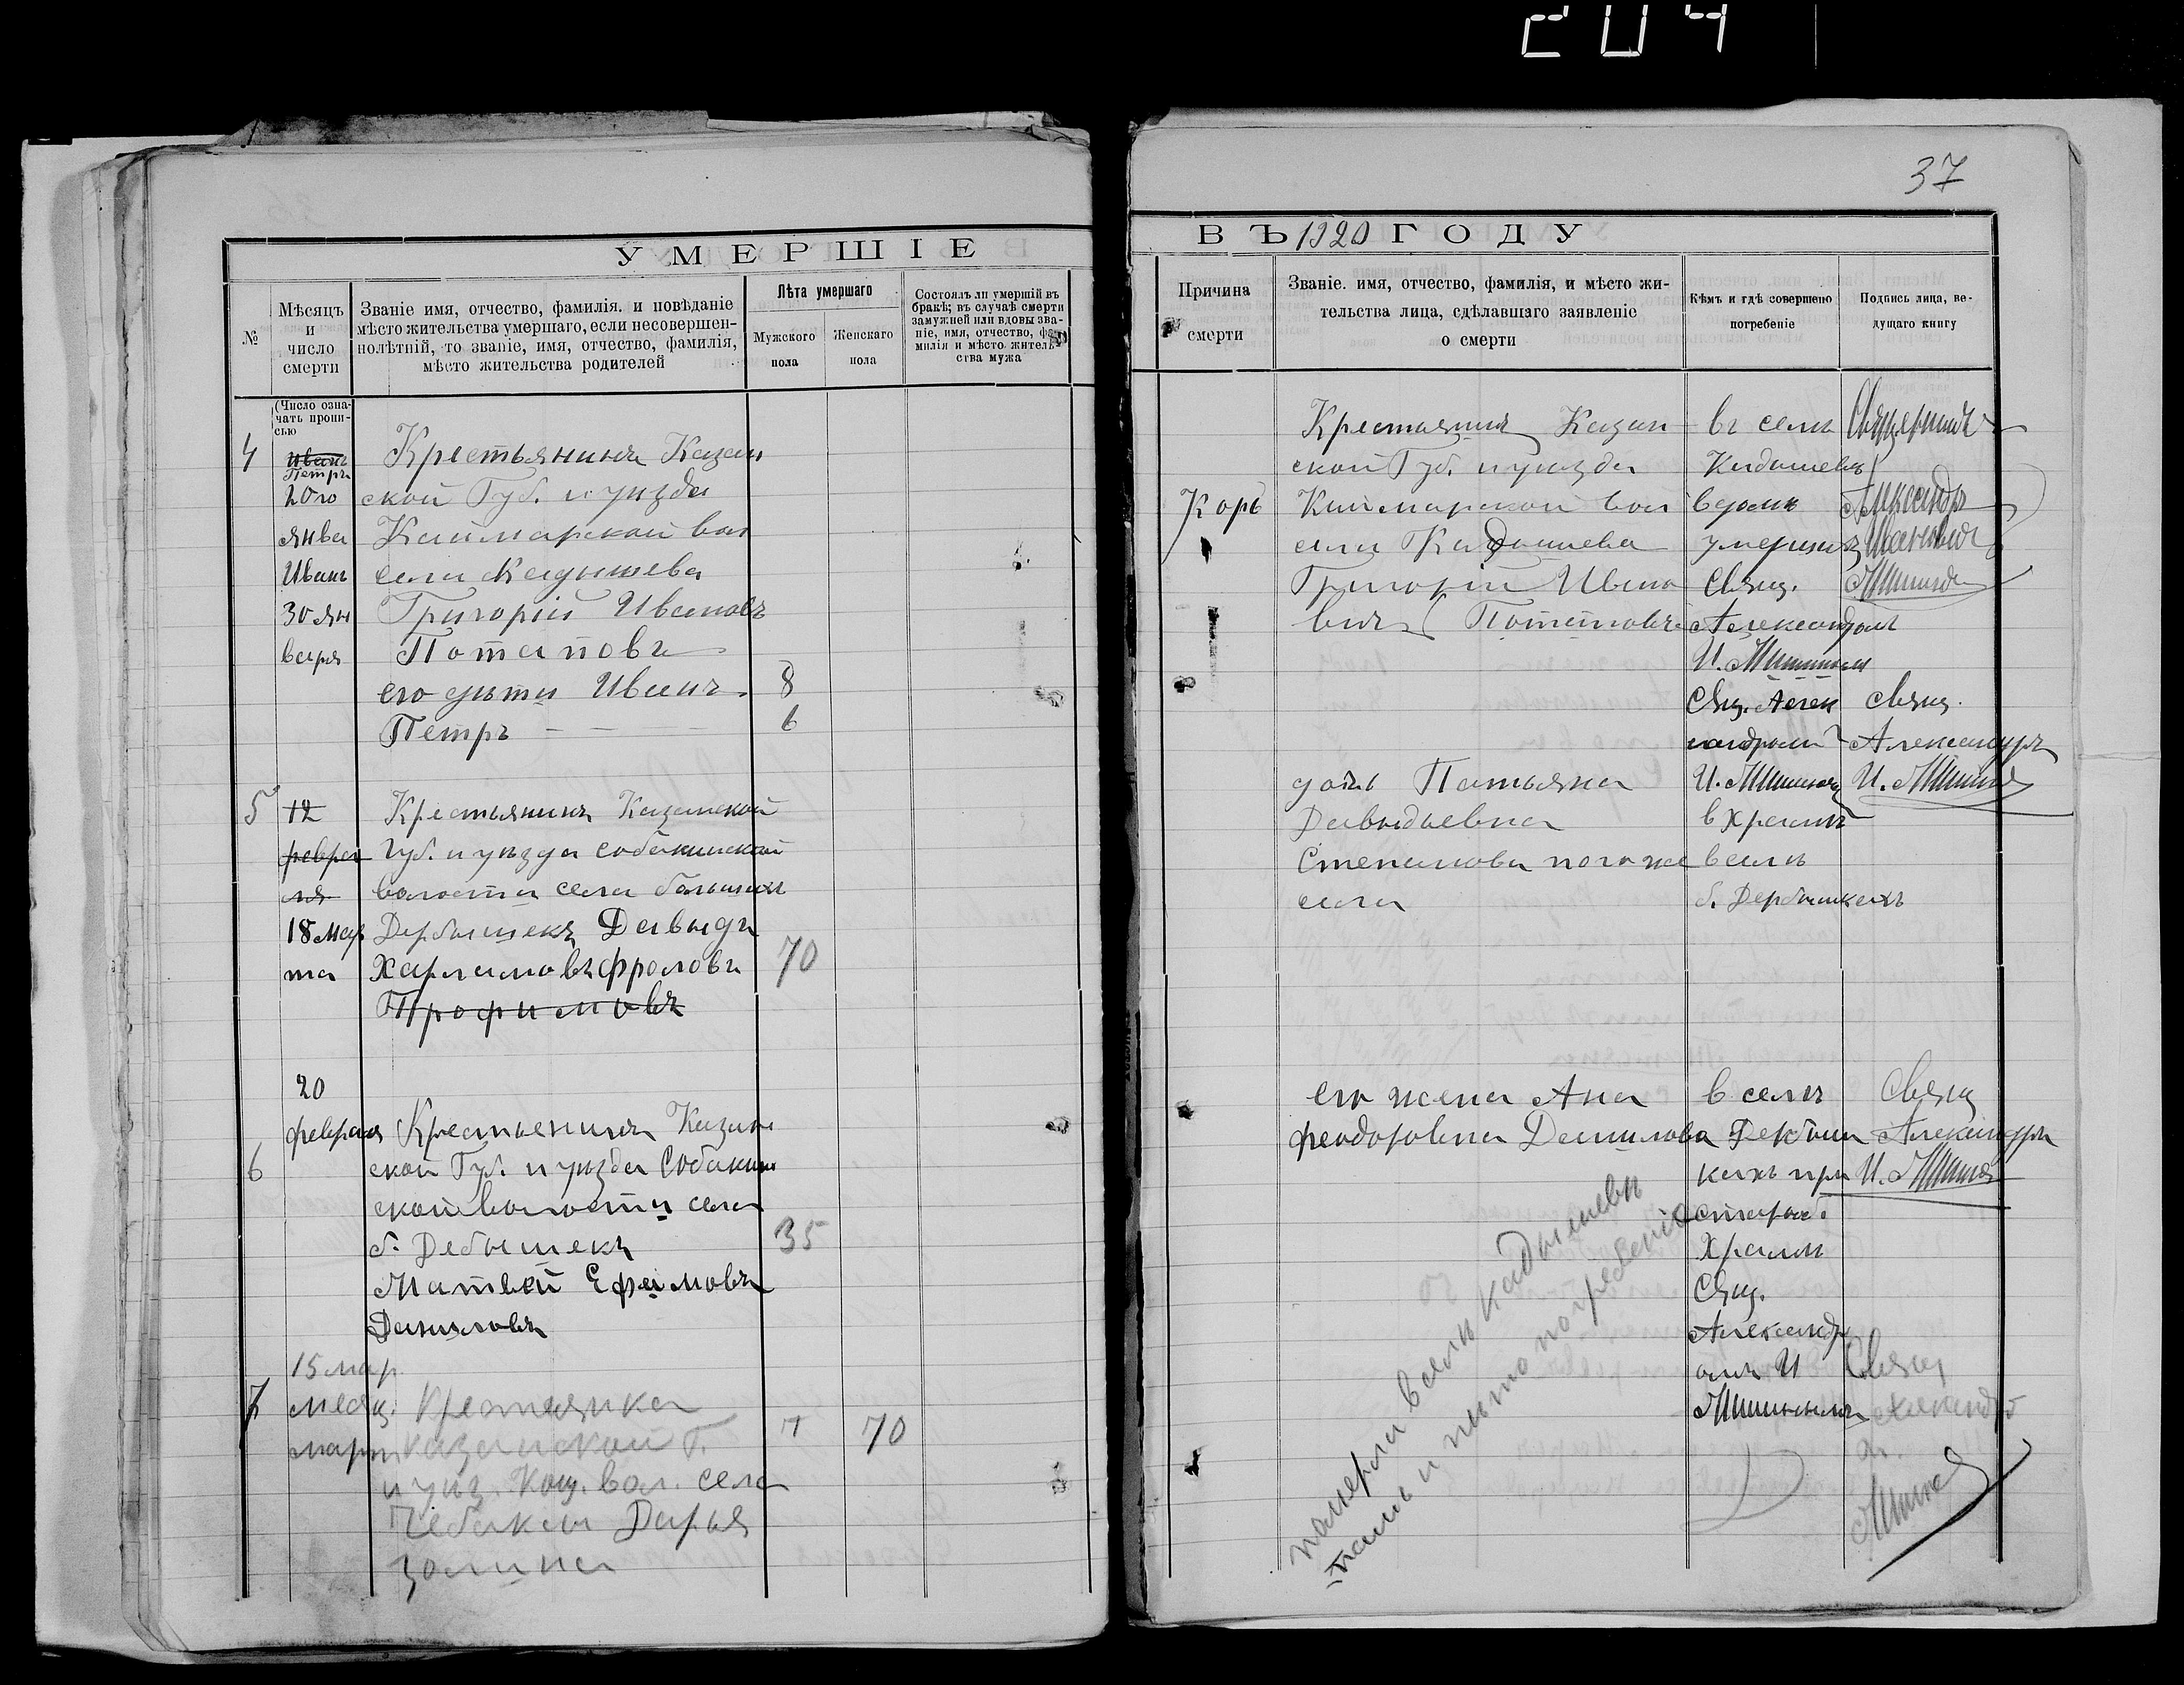 204
37
УМЕРШІЕ
ВЪ 1920 ГОДУ
№
Мѣсяцъ
и
число
смерти
Званіе имя, отчество, фамилія. и повѣданіе
мѣсто жительства умершаго, если несовершен-
нолѣтній, то званіе, имя, отчество, фамилія,
мѣсто жительства родителей
Лѣта умершаго
Мужского
пола
Женскаго
пола
Состоялъ ли умершій въ
бракѣ; въ случаѣ смерти
замужней или вдовы зва-
ніе, имя, отчество, фа-
милія и мѣсто житель-
ства мужа
Причина
смерти
Званіе. имя, отчество, фамилія, и мѣсто жи-
тельства лица, сдѣлавшаго заявленіе
о смерти
Кѣмъ и гдѣ совершено
погребеніе
Подпись лица, ве-
дущаго книгу
(Число озна-
чать пропи-
сью
4
Иванъ
Петръ
20го
янва
Иванъ
30 ян
варя
Крестьянинъ Казан
ской Губ. и уѣзда
Каймарской вол
села Кадышева
Григорій Ивановъ
Потаповъ
его дѣти Иванъ
8
Петръ
6
Корь
Крестьянинъ Казан
ской Губ. и уѣзда
Каймарской вол
села Кадышева
Григорій Ивано
вич Потаповъ
въ селѣ
Кадышевѣ
вдомѣ
умершихъ
Свящ.
Александромъ
И.
Свящ. Алек
сандромъ
И.
Священникъ
Александръ
Ивановичъ
Свящ.
Александръ
И.
5
12
февра
ля
18 мар
та
Крестьянинъ Казанской
Губ. и уѣзда Собакинской
волости села Большихъ
Дербышекъ Давыдъ
Харламовъ Фроловъ
70
Трофимовъ
дочь Татьяна
Давыдьевна
Степанова того же
села
в храмѣ
в селѣ
б. Дербышкахъ
6
20
февраля
Крестьенинъ Казан
ской Губ. и уѣзда Собакин
ской волости села
б. Дебышекъ
35
Матвей Ефимовъ
Даниловъ
его жена Ана
Феодоровна Данилова
в селѣ
Дербыш
кахъ при
старом.
Храмѣ
Свящ.
Александр
омъ И
Свящ
Александръ
И.
7
15 мар
месяц.
марта
Крестьянка
Казанской Г.
и уѣз. Кощ. вол. села
Чебакса Дарья
Золина
70
померли в селѣ Кадышевѣ
тамъ и пѣто погребеніе
Свящ
Александръ